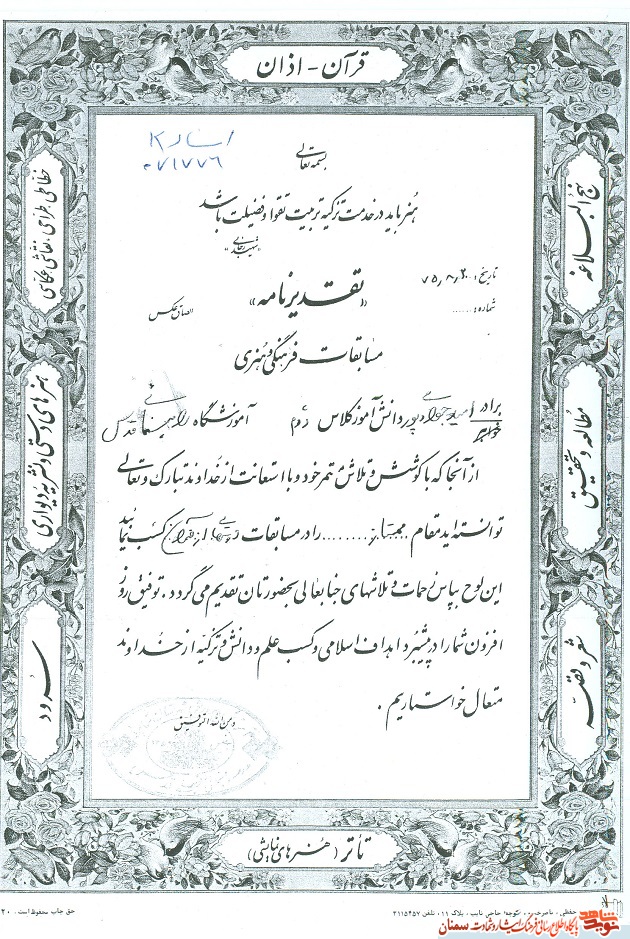 قرآن - اذان
اسناد K
۰۷۱۷۷۶
بسمه تعالی
هنر باید در خدمت تزکیه تربیت تقوا و فضیلت باشد
«شهید رجائی»
تاریخ: ۷۵٫۸٫۲۰۰
شماره: ......
الصاق عکس
«تقدیرنامه»
مسابقات فرهنگی و هنری
برادر امید جوادی پور دانش آموز کلاس دوم آموزشگاه راهنمائی قدس
خواهر
از آنجا که با کوشش و تلاش ثمر خود و با استعانت از خداوند تبارک و تعالی
توانسته اید مقام ممتاز........ را در مسابقات از قرآن کسب نمائید
این لوح بپاس زحمات و تلاشهای جنابعالی بحضورتان تقدیم می گردد. توفیق روز
افزون شما را در پیشبرد اهداف اسلامی و کسب علم و دانش و تزکیه از خداوند
متعال خواستاریم.
و من الله التوفیق
نهج البلاغه
مطالعه و تحقیق
شعر و قصه
خطاطی، طراحی، نقاشی، عکاسی
هنرهای دستی و نشریه دیواری
سرود
تأتر (هنرهای نمایشی)
کوچه حاجی نایب، پلاک ۱۱، تلفن ۳۱۱۵۴۵۷
حق چاپ محفوظ است. ۲۰
نوید شاهد
پایگاه اطلاع رسانی فرهنگ ایثار و شهادت سمنان